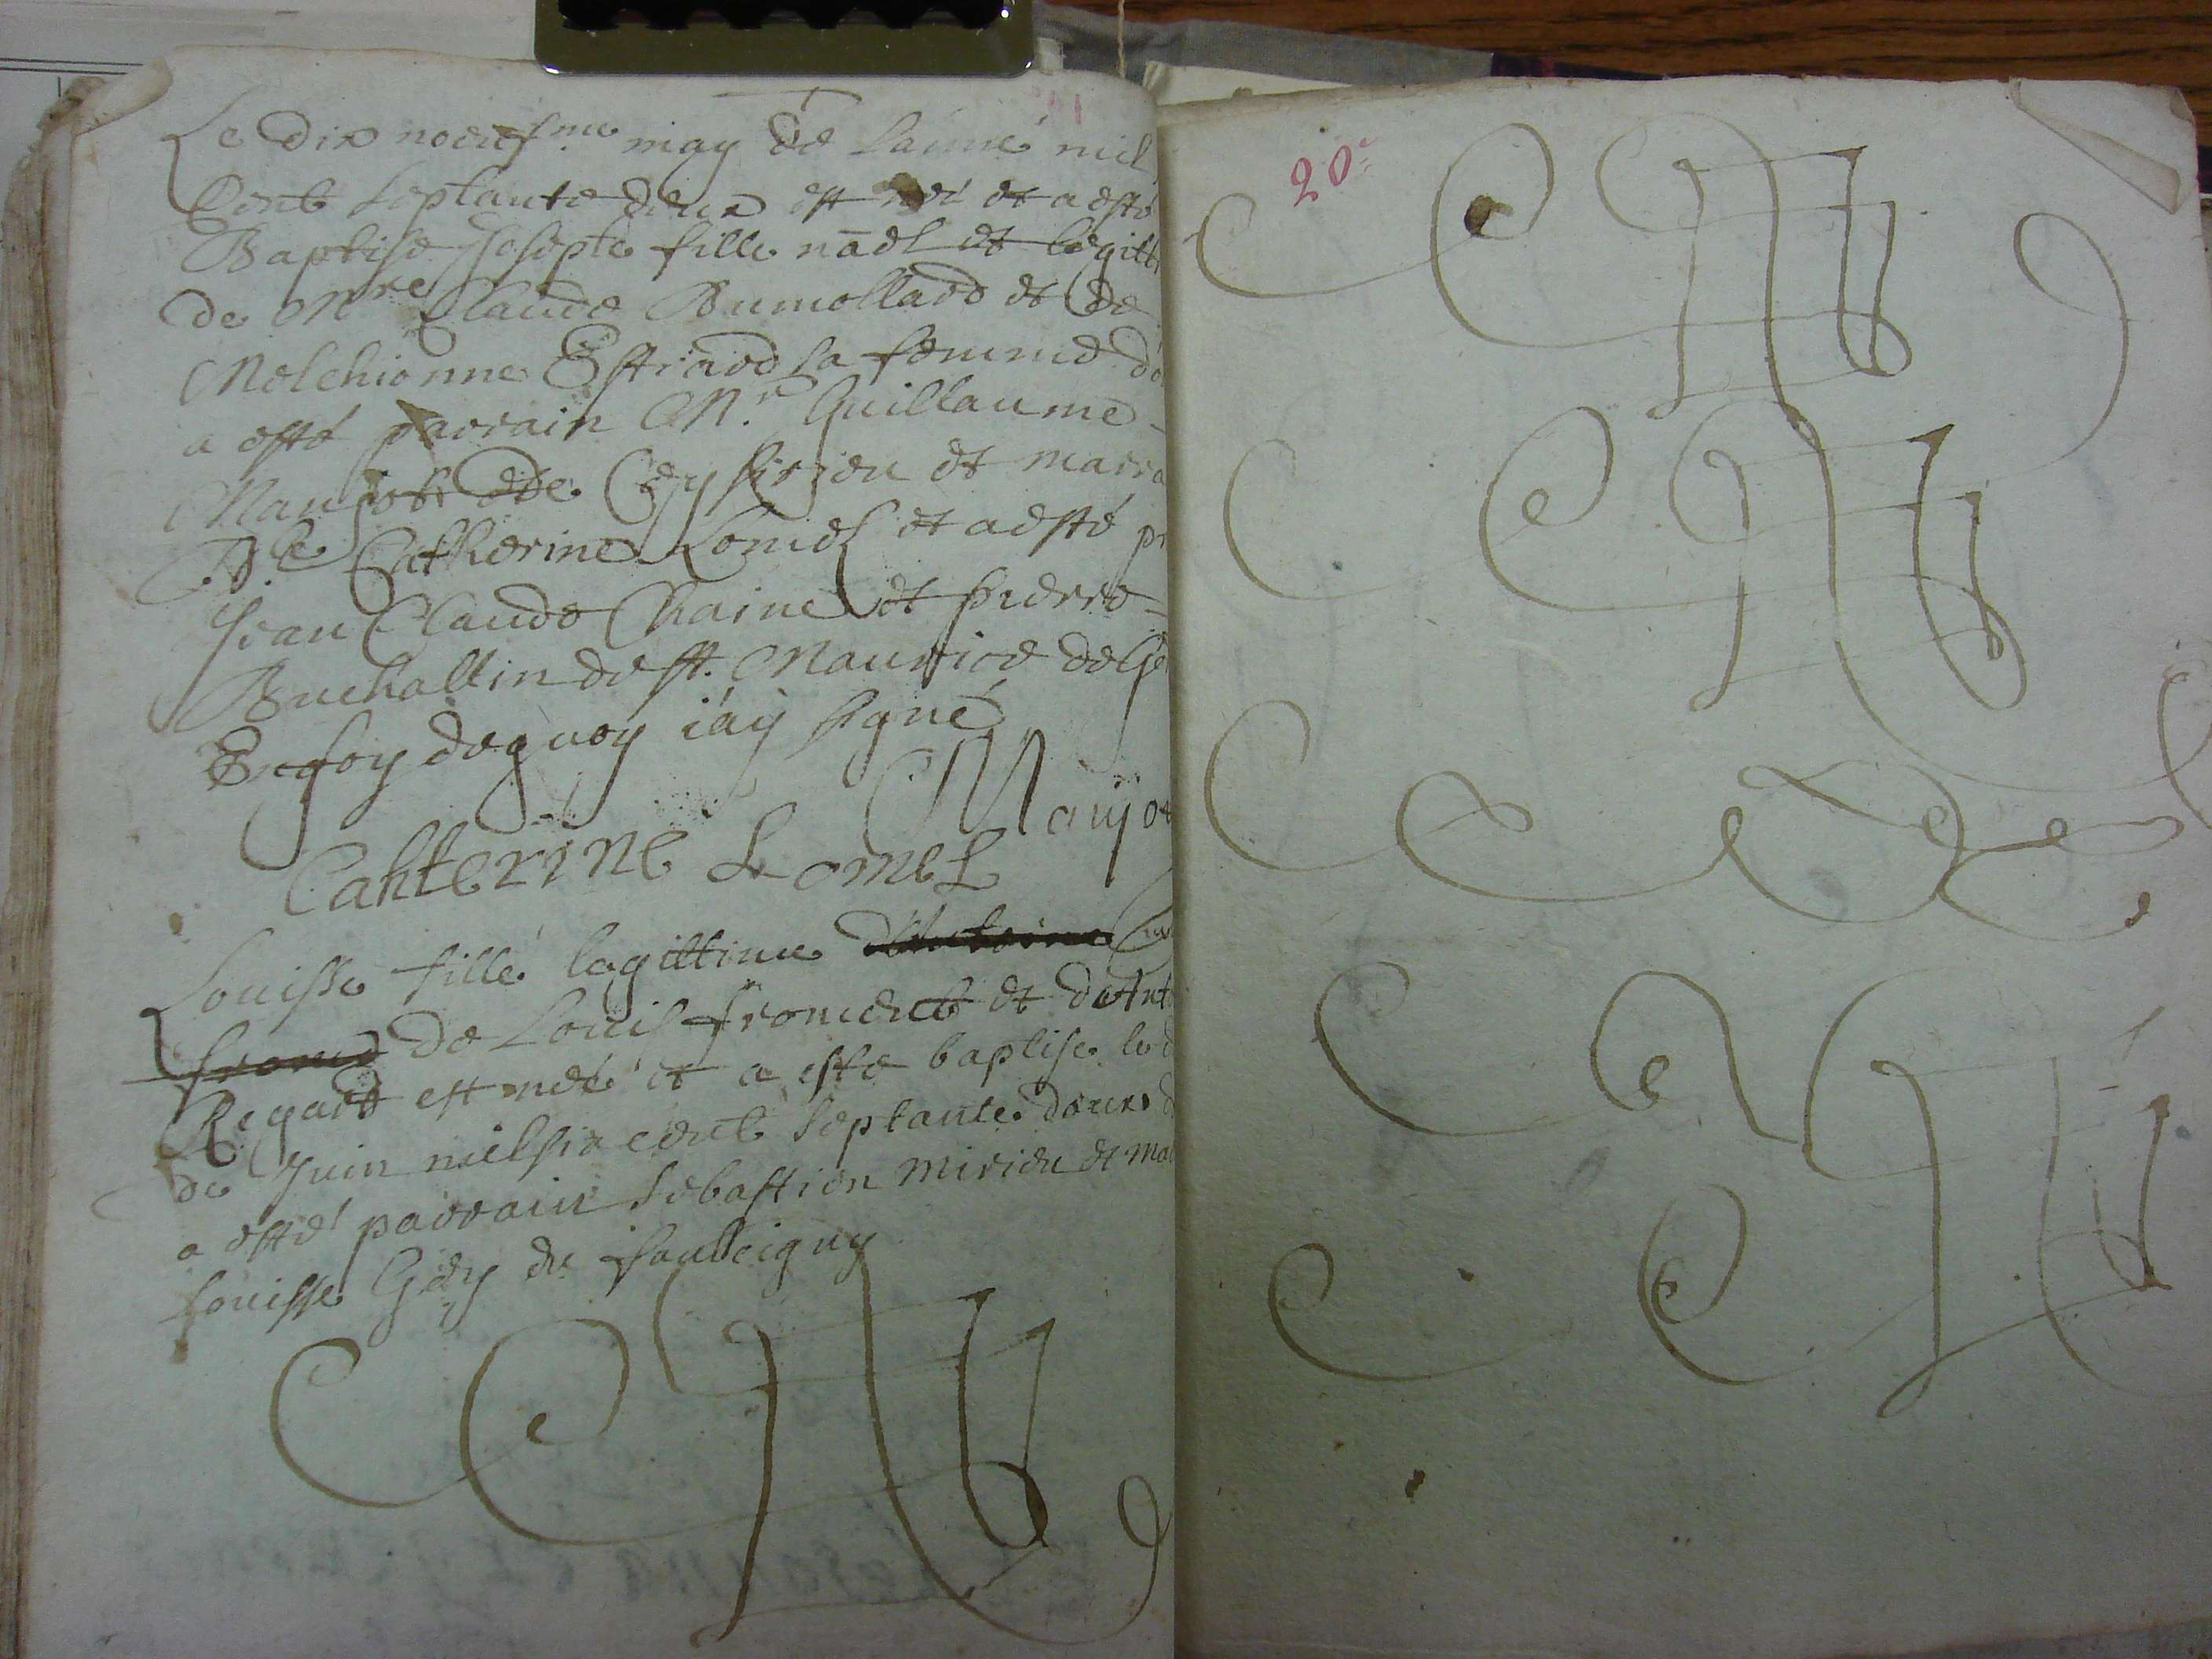 Le dix noeuf.me may de lanné mil
Cent septante deux est né et a esté
Baptisé Josepte fille nãel et legitt
de Mre Claude Dumollard et de
Melchionne Estriard sa femme do
a esté parrain Mr. Guillaume
de Ceysirieu et marra
Dlle Catherine Lomel et a esté pr
Jean Claude Chaine et pierre
Buchallin de St. Maurice de
En foy de quoy iay signé
Maujo
Cahterine Lomel
Louisse fille legittime
de Louis froment et dant
Regard est née et a esté baptisé le
de Juin mil six cent septante deux
a esté parrain Sebastien Mirieu et Ma
Louisse Gey de
20e